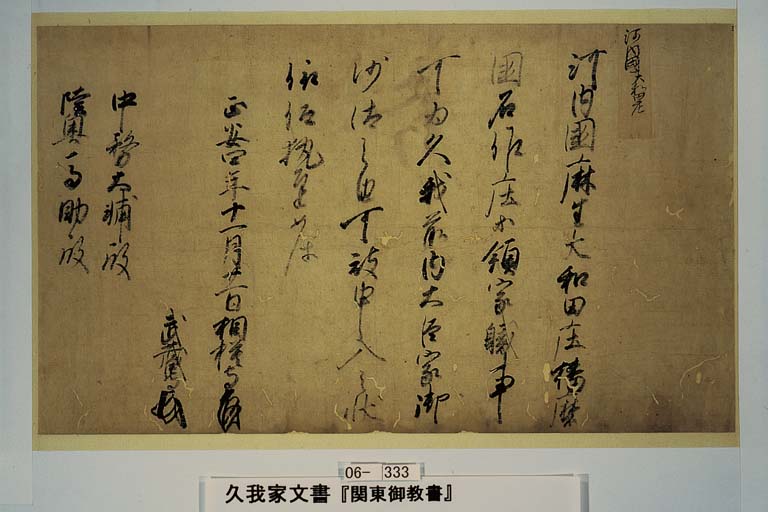 河内國大和田庄
河内國麻生大和田庄播磨
國石作庄等領家職事
可為久我前内大臣家御
沙汰之由可被申入之状
依仰執達如件
正安四年十一月廿日相模守
武蔵守
中務大輔殿
陸奥守助殿
06-333
久我家文書『関東御教書』